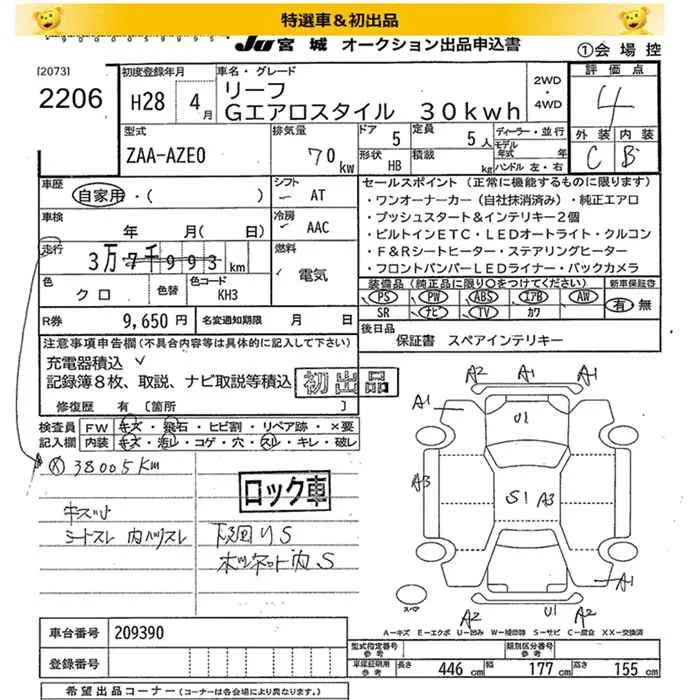 特選車＆初出品
JU 宮城 オークション出品申込書
①会場控
[2073]
2206
初度登録年月
H28 4月
車名・グレード
リーフ
Gエアロスタイル 30kwh
2WD
・
4WD
評価点
4
外装 内装
C B
型式
ZAA-AZE0
排気量
70 kw
ドア 5
定員 5人
形状 HB
積載 kg
ディーラー・並行
モデル年式 年
ハンドル 左・右
車歴
自家用・( )
シフト
AT
車検
年 月( 日)
冷房
AAC
走行
3万7千993km
燃料
電気
色
クロ
色替
色コード
KH3
R券 9,650円
名変通知期限 月 日
セールスポイント (正常に機能するものに限ります)
・ワンオーナーカー(自社抹消済み)・純正エアロ
・プッシュスタート＆インテリキー2個
・ビルトインETC・LEDオートライト・クルコン
・F＆Rシートヒーター・ステアリングヒーター
・フロントバンパーLEDライナー・バックカメラ
装備品(純正品に限り○をつけてください)
新車保証書
PS PW ABS エアB AW
SR ナビ TV カワ
有 無
後日品
保証書 スペアインテリキー
注意事項申告欄(不具合内容等は具体的に記入して下さい)
充電器積込
記録簿8枚、取説、ナビ取説等積込
初出品
修復歴 有 〔箇所 〕
検査員記入欄
FW キズ・飛石・ヒビ割・リペア跡・×要
内装 キズ・汚レ・コゲ・穴・スレ・キレ・破レ
38005km
ロック車
シートスレ
下廻りS
ボンネット内S
A2 A1 A1
A1
U1
A3
S1 A3
A1
A2 U1 A2
スペア
A-キズ E-エクボ U-凹み W-補修跡 S-サビ C-腐食 XX-交換済
車台番号 209390
登録番号
型式指定番号 参考
類別区分番号 参考
車庫証明用 参考
長さ 446cm 幅 177cm 高さ 155cm
希望出品コーナー(コーナーは各会場により異なります。)